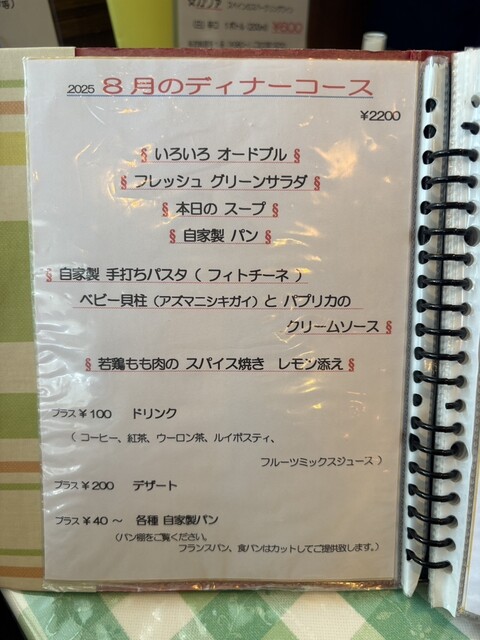 ¥600
2025 8月のディナーコース
¥2200
§ いろいろ オードブル §
§ フレッシュ グリーンサラダ §
§ 本日の スープ §
§ 自家製 パン §
§ 自家製 手打ちパスタ ( フィトチーネ )
ベビー貝柱 (アズマニシキガイ) と パプリカの
クリームソース §
§ 若鶏もも肉の スパイス焼き レモン添え §
プラス ¥100 ドリンク
( コーヒー、紅茶、ウーロン茶、ルイボスティ、
フルーツミックスジュース )
プラス ¥200 デザート
プラス ¥40 ~ 各種 自家製パン
(パン棚をご覧ください。
フランスパン、食パンはカットしてご提供致します。)